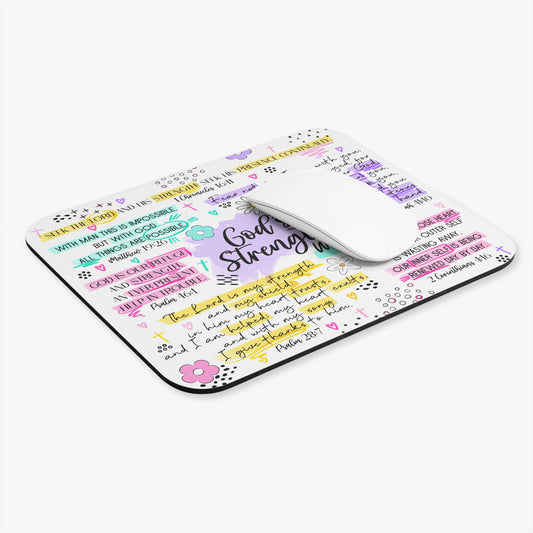 SEEK THE LORD AND HIS STRENGTH SEEK HIS PRESENCE CONTINUALLY
1 Chronicles 16:11
WITH MAN THIS IS IMPOSSIBLE
BUT WITH GOD
ALL THINGS ARE POSSIBLE
Matthew 19:26
GOD IS OUR REFUGE
AND STRENGTH
AND EVER PRESENT
HELP IN TROUBLE
Psalm 46:1
God
Strength
Fear
with you
for
God
you
you
hand
41:10
LOSE HEART
OUTER SELF
IS WASTING AWAY
OUR INNER SELF IS BEING
RENEWED DAY BY DAY
2 Corinthians 4:16
The Lord is my strength
and my shield;
in him my heart trusts,
and I am helped; my heart exults,
and with my song
I give thanks to him.
Psalm 28:7